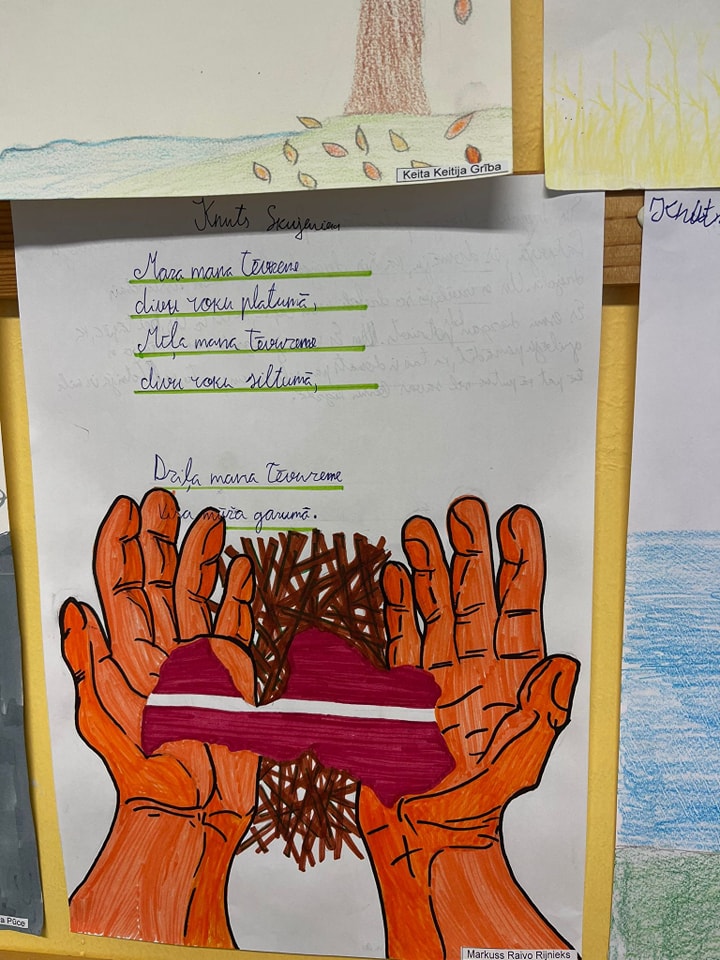 Keita Keitija Grība
Knuts Skujenieks
Maza mana tēvzeme
divu roku platumā,
Mīļa mana tēvzeme
divu roku siltumā,
Dziļa mana tēvzeme
mūža garumā.
Knuts
a Pūce
Markuss Raivo Rijnieks